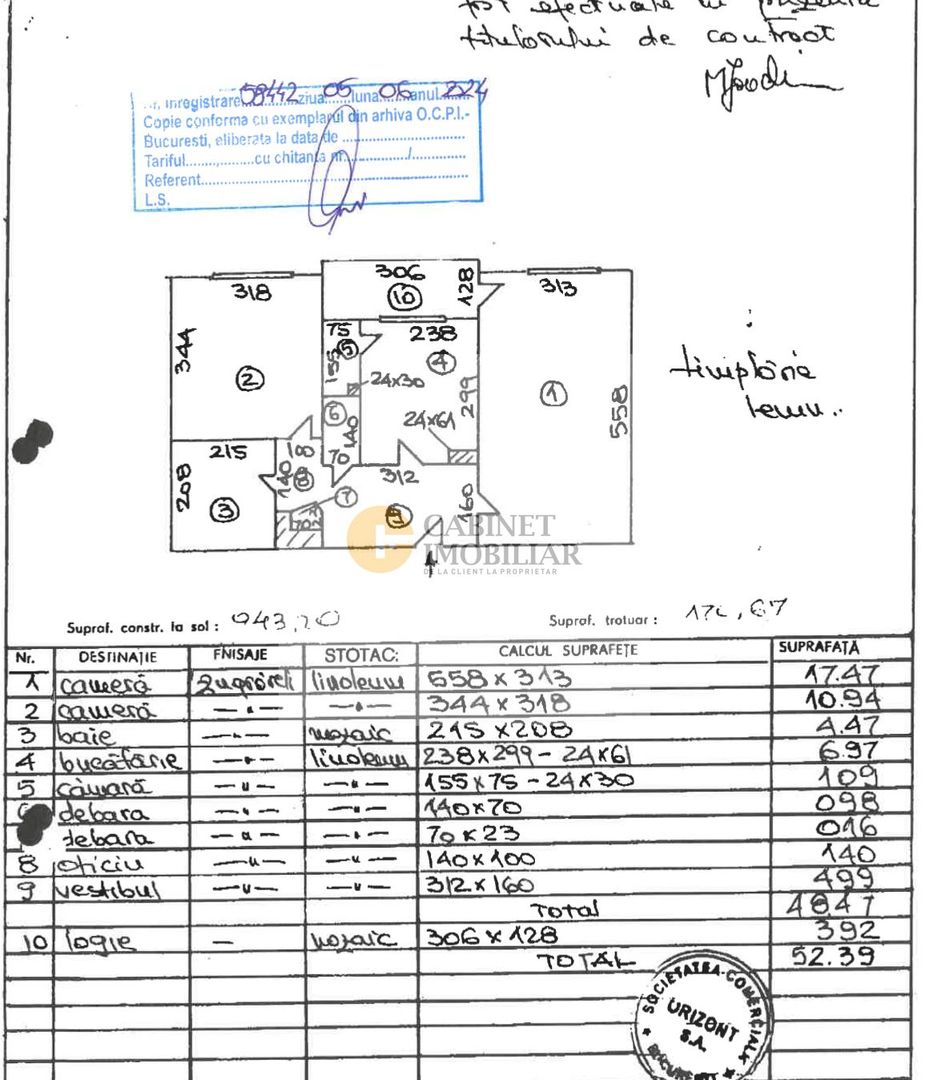 fost efectuate în prezența
titularului de contract
Nr. inregistrare 58442 ziua 05 luna 06 anul 2024
Copie conforma cu exemplarul din arhiva O.C.P.I.-
Bucuresti, eliberata la data de
Tariful..........cu chitanta nr............../..............
Referent
L.S.
306
128
318
10
313
75
238
5
155
4
344
2
24x30
299
1
6
24x61
558
140
tîmplărie
lemn..
215
100
70
312
208
140
8
7
160
3
70
23
9
CABINET
IMOBILIAR
DE LA CLIENT LA PROPRIETAR
Supraf. constr. la sol : 943,20
Supraf. trotuar :
Nr. DESTINAȚIE FNISAJE STOTAC: CALCUL SUPRAFEȚE SUPRAFAȚĂ
1 cameră zugrăveli linoleum 558 x 313 17.47
2 cameră —"— —"— 344 x 318 10.94
3 baie —"— mozaic 215 x 208 4.47
4 bucătărie —"— linoleum 238 x 299 - 24 x 61 6.97
5 cămară —"— —"— 155 x 75 - 24 x 30 109
debara —"— —"— 140 x 70 098
debara —"— —"— 70 x 23 016
8 oficiu —"— —"— 140 x 100 140
9 vestibul —"— —"— 312 x 160 499
Total 4847
10 logie — mozaic 306 x 128 392
TOTAL 52.39
SOCIETATEA COMERCIALA
URIZONT
S.A.
BUCURESTI